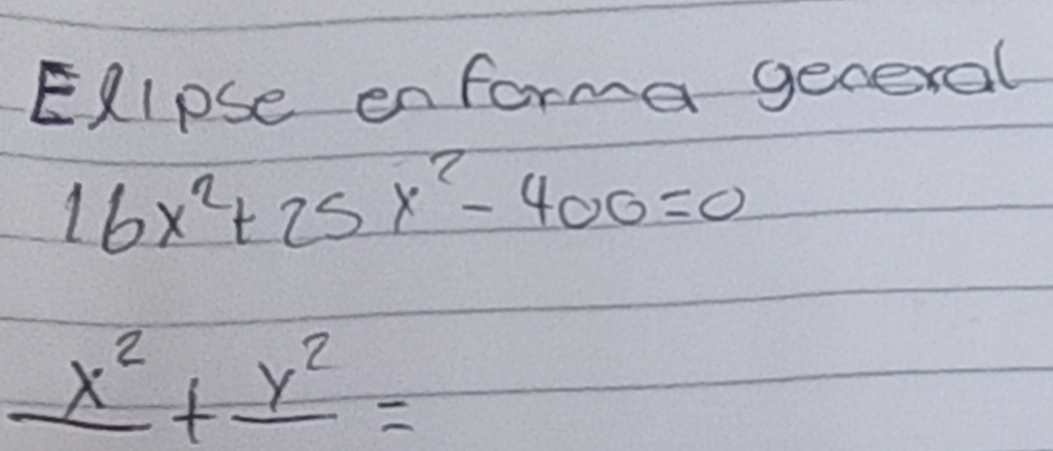 Elipse en forma general
16x²+25x²-400=0
x² + y² =